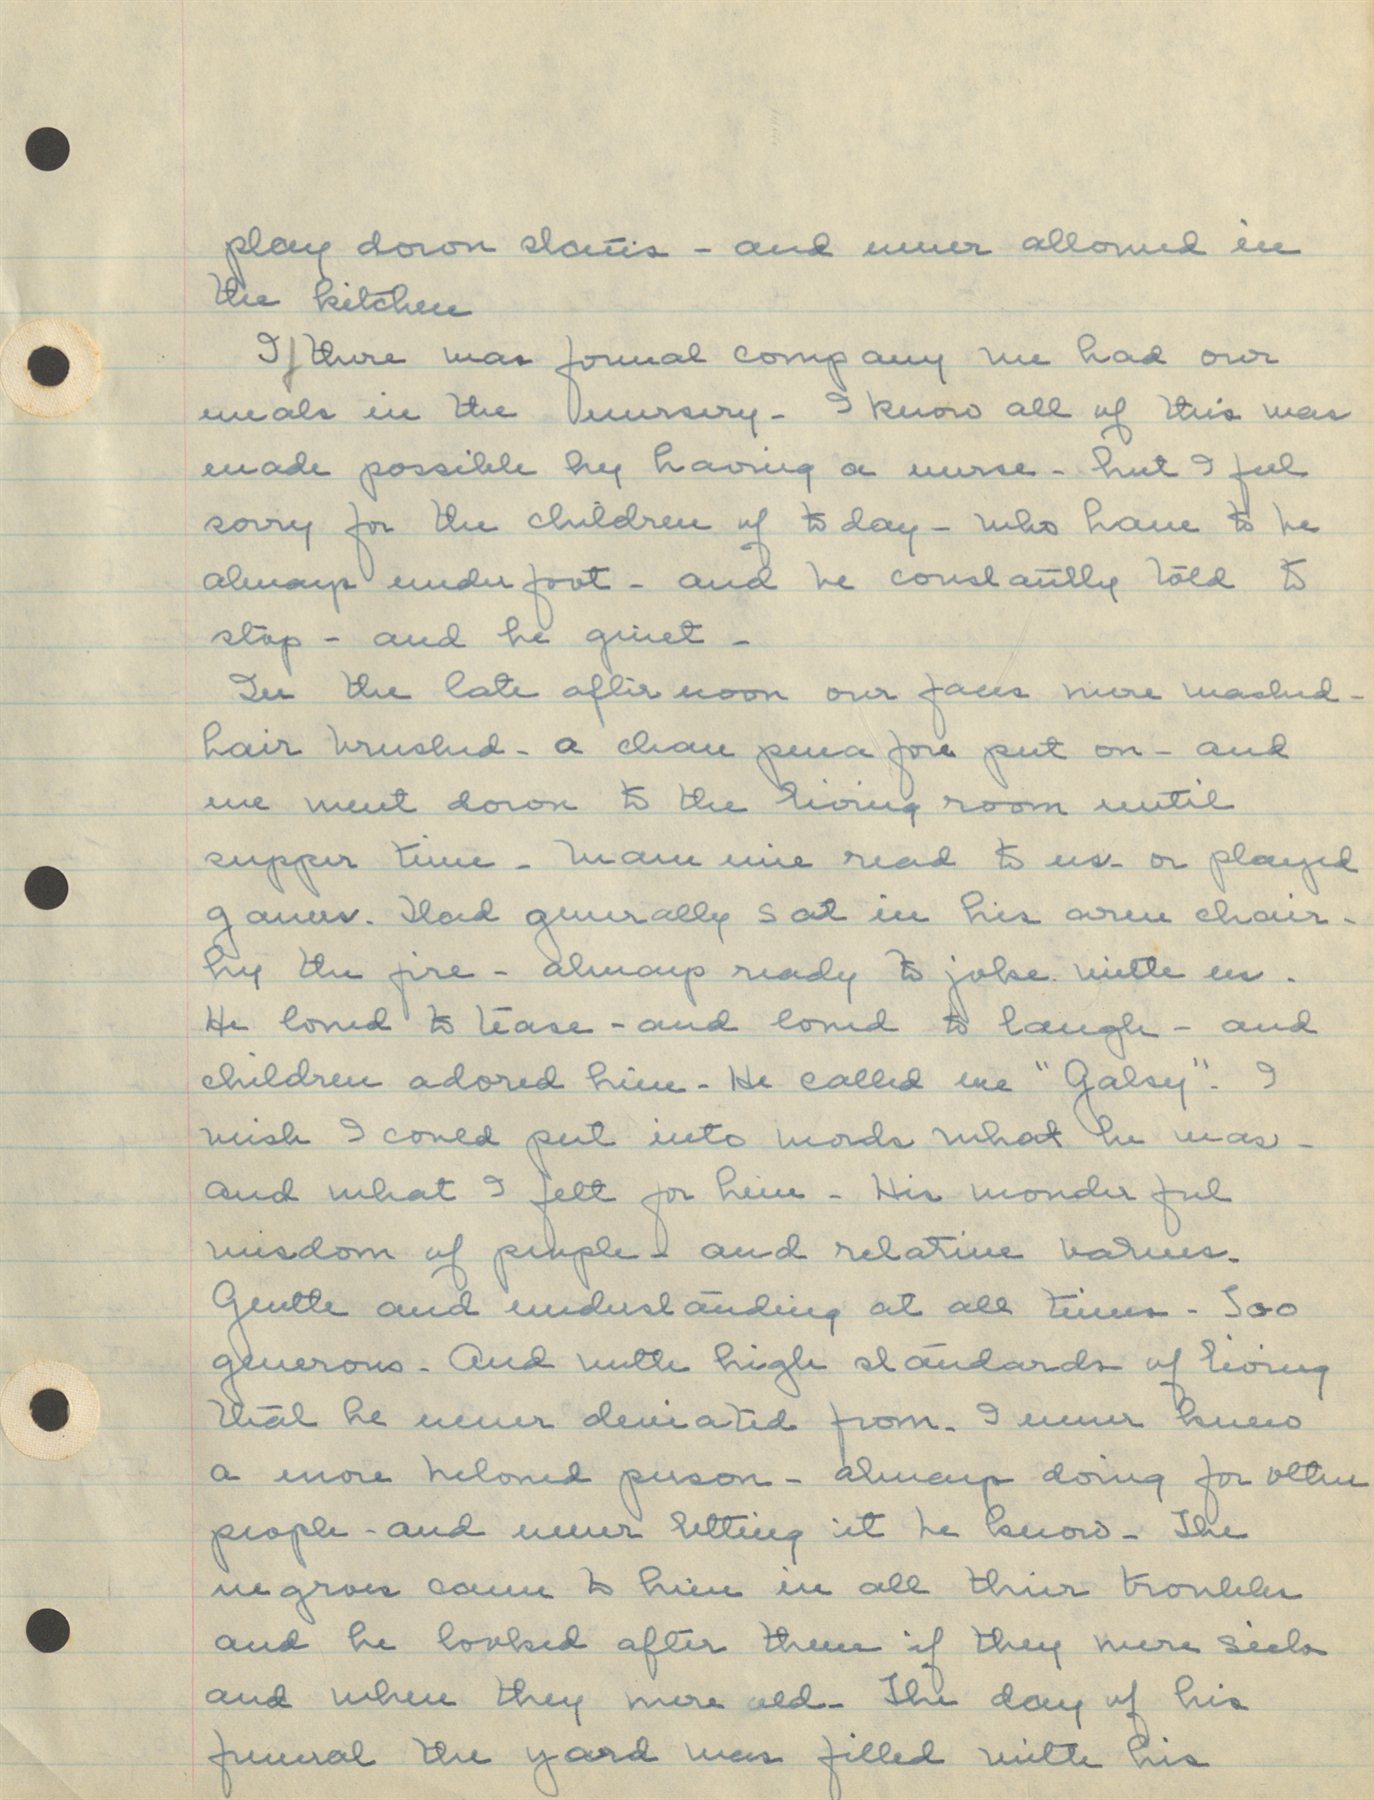 play down stairs - and never allowed in
the kitchen
If there was formal company we had our
meals in the nursery - I know all of this was
made possible by having a nurse - but I feel
sorry for the children of to day - who have to be
always under foot - and be constantly told to
stop - and be quiet -
In the late after noon our faces were washed -
hair brushed - a clean pina fore put on - and
we went down to the living room until
supper time - Mam mie read to us - or played
games. Dad generally sat in his arm chair -
by the fire - always ready to joke with us.
He loved to tease - and loved to laugh - and
children adored him - He called me "Galsy". I
wish I could put into words what he was -
and what I felt for him - His wonder ful
wisdom of people - and relative values.
Gentle and understanding at all times - Too
generous - And with high standards of living
that he never deviated from. I never knew
a more beloved person - always doing for other
people - and never letting it be known - The
negroes came to him in all thier troubles
and he looked after them if they were sick
and when they were old - The day of his
funeral the yard was filled with his